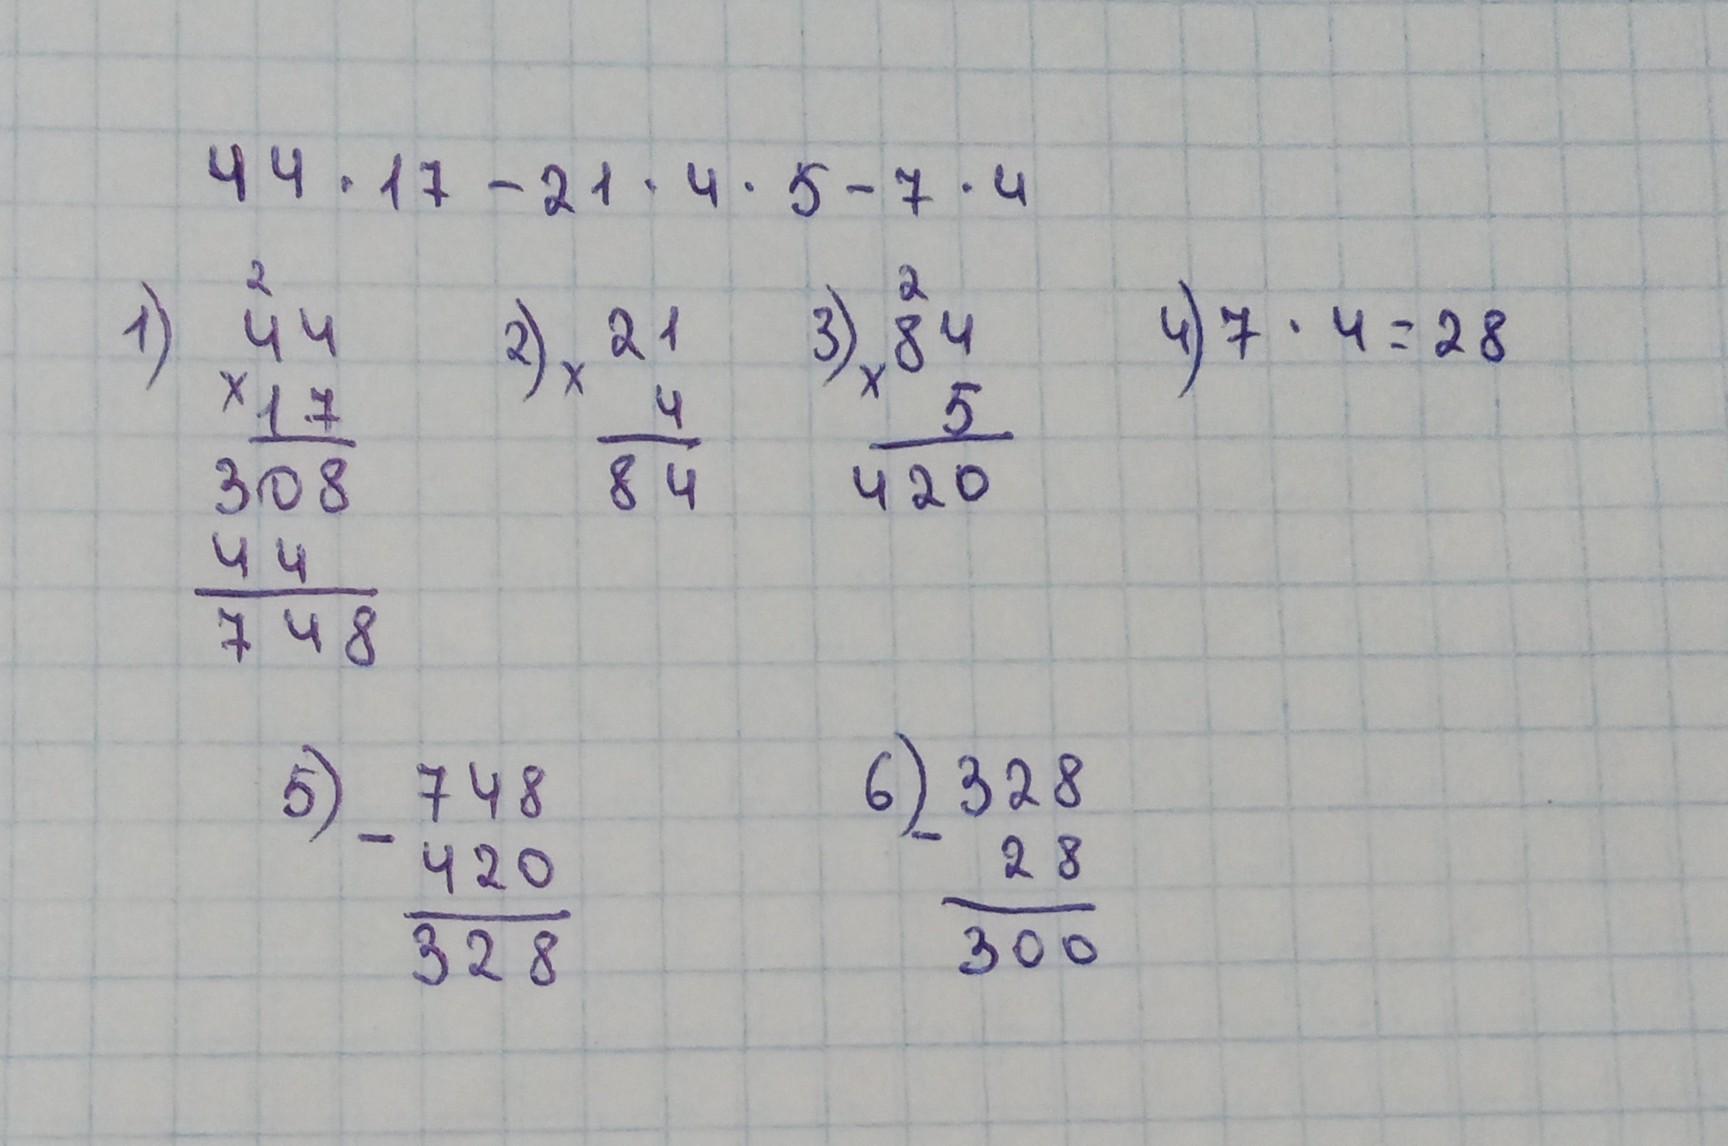 44 · 17 - 21 · 4 · 5 - 7 · 4
1) 2
44
× 17
308
44
748
2) 21
× 4
84
3) 2
84
× 5
420
4) 7 · 4 = 28
5) 748
- 420
328
6) 328
- 28
300